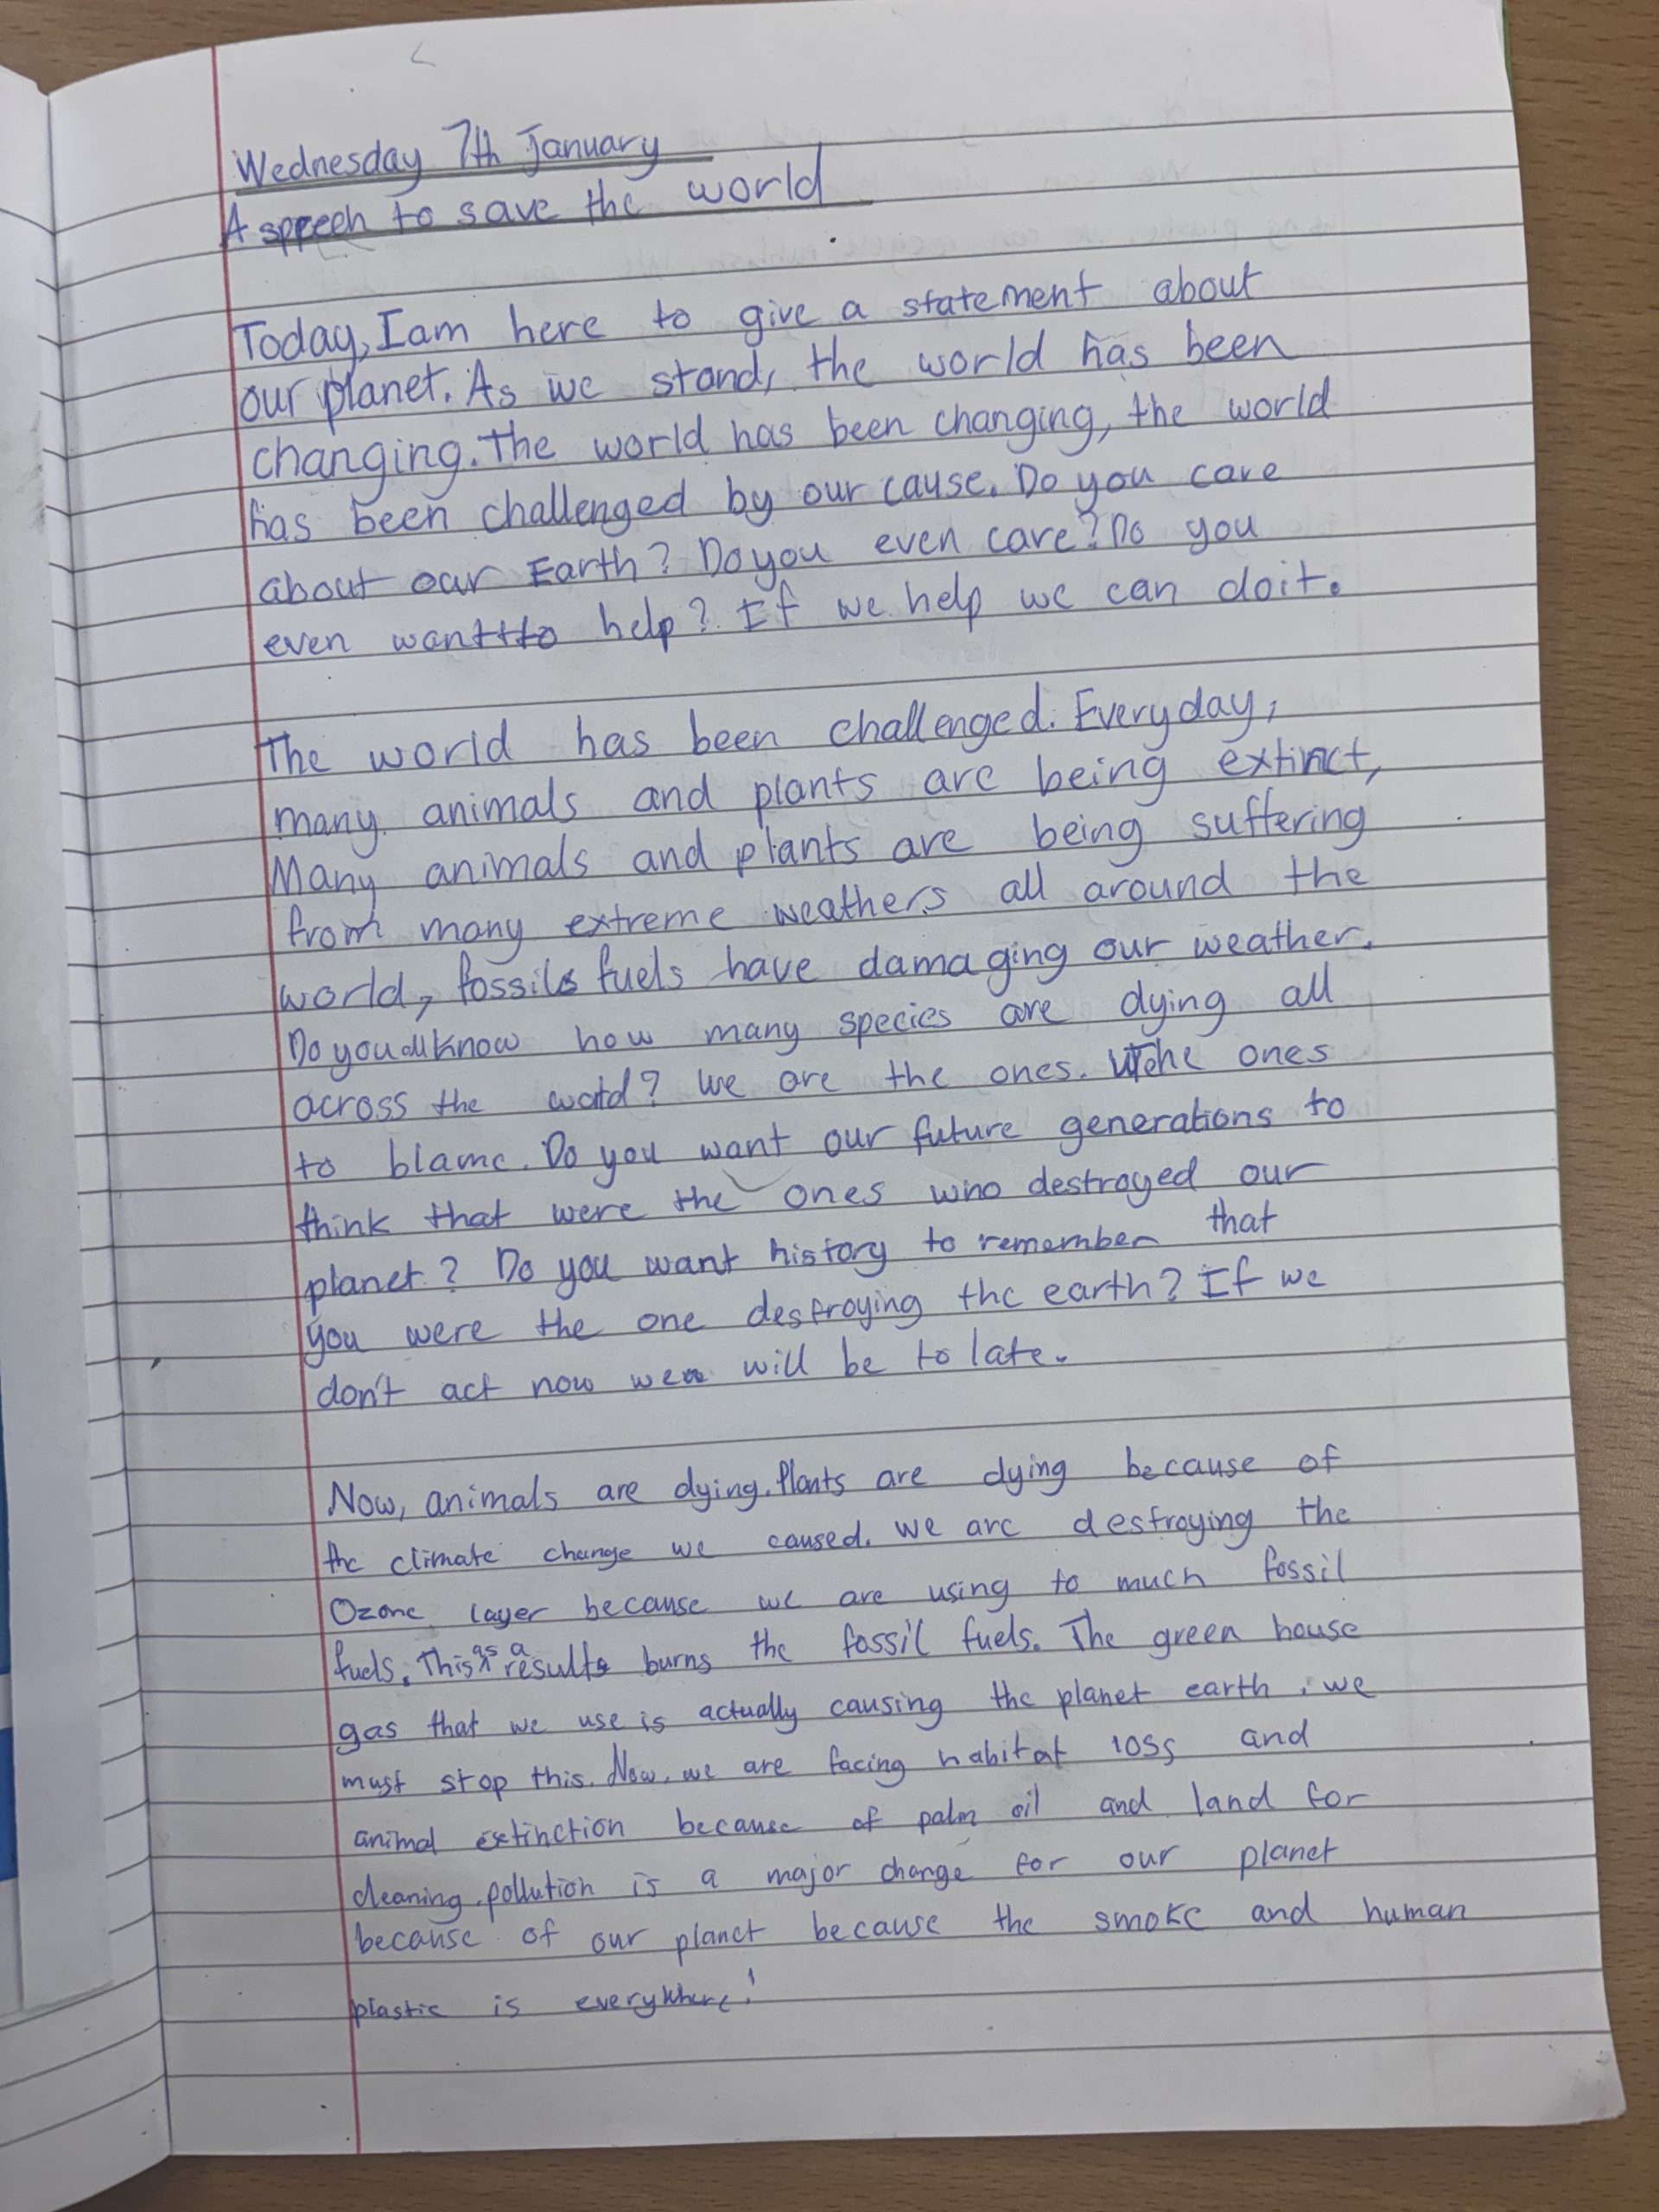 Wednesday 7th January
A speech to save the world
Today, I am here to give a statement about
our planet. As we stand, the world has been
changing. The world has been changing, the world
has been challenged by our cause. Do you care
about our Earth? Do you even care? Do you
even want to help? If we help we can do it.
The world has been challenged. Everyday,
many animals and plants are being extinct,
Many animals and plants are being suffering
from many extreme weathers all around the
world, fossils fuels have damaging our weather.
Do you all know how many species are dying all
across the world? We are the ones. The ones
to blame. Do you want our future generations to
think that were the ones who destroyed our
planet? Do you want history to remember that
you were the one destroying the earth? If we
don't act now we will be to late.
Now, animals are dying. Plants are dying because of
the climate change we caused. We are destroying the
Ozone layer because we are using to much fossil
fuels. This as a results burns the fossil fuels. The green house
gas that we use is actually causing the planet earth, we
must stop this. Now, we are facing habitat loss and
animal extinction because of palm oil and land for
cleaning. pollution is a major change for our planet
because of our planet because the smoke and human
plastic is everywhere!